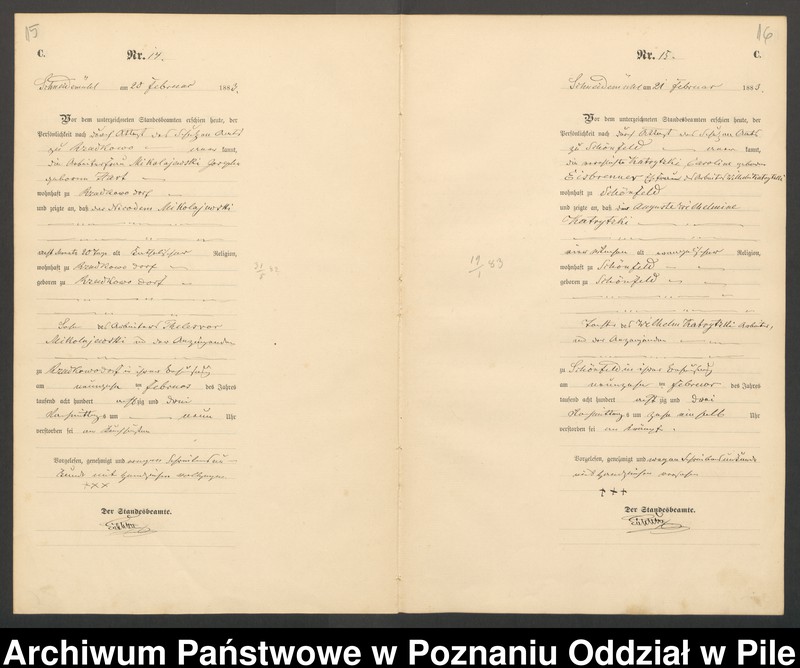 15
C.
Nr. 14.
Schneidemühl am 20 Februar 1883.
Vor dem unterzeichneten Standesbeamten erschien heute, der
Persönlichkeit nach durch Attest des Schulzen Amts
zu Kzadkowo kannt,
die Arbeiterfrau Mikolajewski
geborene
wohnhaft zu Kzadkowo dorf
und zeigte an, daß das Nicodem Mikolajewski
acht Monate 20 Tage alt katholischer Religion,
wohnhaft zu Kzadkowo dorf
geboren zu Kzadkowo dorf
Sohn des Arbeiters
Mikolajewski und der Anzeigenden
zu Kzadkowodorf in ihrer Behausung
am neunzehn ten Februar des Jahres
tausend acht hundert achtzig und drei
Nachmittags um neun Uhr
verstorben sei an
Vorgelesen, genehmigt und wegen Schreibensun-
kunde mit Handzeichen vollzogen
+++
Der Standesbeamte.
16
Nr. 15.
C.
Schneidemühl am 21 Februar 1883.
Vor dem unterzeichneten Standesbeamten erschien heute, der
Persönlichkeit nach durch Attest des Schulzen Amts
zu Schönfeld kannt,
die verehelichte Katrytzki Caroline geborene
Eisbrenner Ehefrau des Arbeiters Wilhelm Katrytzki
wohnhaft zu Schönfeld
und zeigte an, daß die Auguste Wilhelmine
Katrytzki
vier Wochen alt evangelischer Religion,
wohnhaft zu Schönfeld
geboren zu Schönfeld
Tochter des Wilhelm Katrytzki Arbeiter,
und der Anzeigenden
zu Schönfeld in ihrer Behausung
am neunzehn ten Februar des Jahres
tausend acht hundert achtzig und drei
Nachmittags um zehn ein halb Uhr
verstorben sei an Krämpfe.
Vorgelesen, genehmigt und wegen Schreibensunkunde
mit Handzeichen versehen
+++
Der Standesbeamte.
Archiwum Państwowe w Poznaniu Oddział w Pile